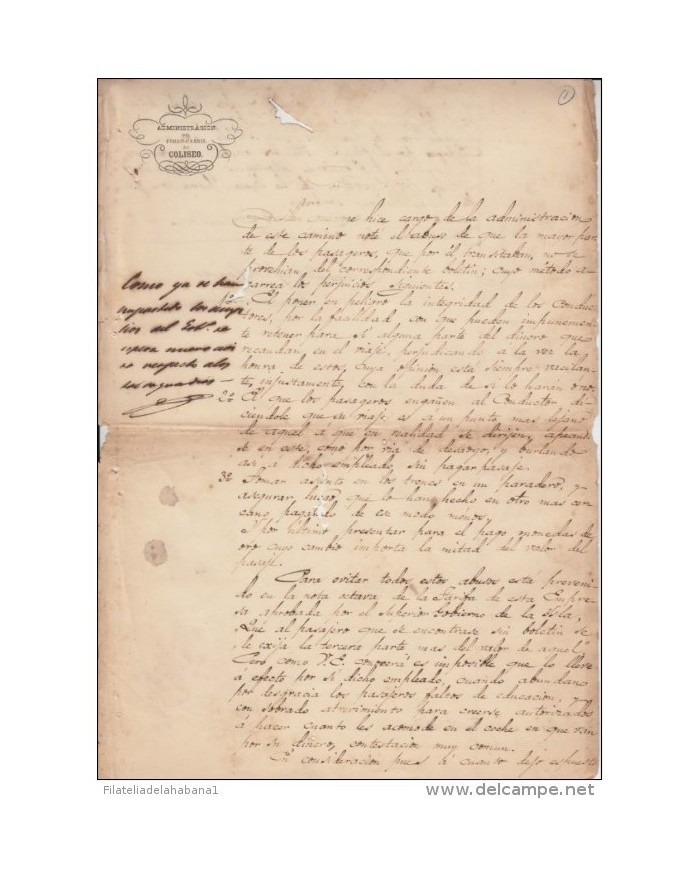 1
ADMINISTRACION
DEL
FERRO-CARRIL
DE
COLISEO.
me hice cargo de la administracion
de este camino noté el abuso de que la mayor par
te de los pasageros, que por él transitaban, no se
del correspondiente boletin; cuyo metodo a-
carrea los perjuicios siguientes.
1º El poner en peligro la integridad de los Conduc
tores, por la facilidad con que pueden impunemen
te retener para sí alguna parte del dinero que
recaudan en el viaje, perjudicando a la vez la
honra de estos, cuya opinion está siempre vacilan-
te, injustamente, con la duda de si lo harán ó no;
2º El que los pasageros engañen al Conductor di-
ciendole que su viaje es á un punto mas lejano
de aquel á que en realidad se dirijen, apeando
se en este, como por via de desaogo, y burlando
así á dicho empleado, sin pagar pasaje.
3º Tomar asiento en los trenes en un paradero, y
asegurar luego que lo han hecho en otro mas cer
cano pagando de ese modo ménos,
Y por último presentar para el pago monedas de
oro cuyo cambio importa la mitad del valor del
pasaje.
Para evitar todos estos abusos está preveni
do en la nota octava de la Tarifa de esta Empre
sa aprobada por el Superior Gobierno de la Isla,
Que al pasajero que se encontrase sin boletin se
le exija la tercera parte mas del valor de aquel.
Pero como V.E. conocerá es imposible que lo lleve
á efecto por sí dicho empleado, cuando abundan
por desgracia los pasajeros faltos de educacion, y
con sobrado atrevimiento para creerse autorizados
á hacer cuanto les acomode en el coche en que van
por su dinero, contestacion muy comun.
En consideracion pues á cuanto dejo espuesto
Como ya se han
del Gobº. se
nuevo
se respecto a los
Filateliadelahabana1
www.delcampe.net